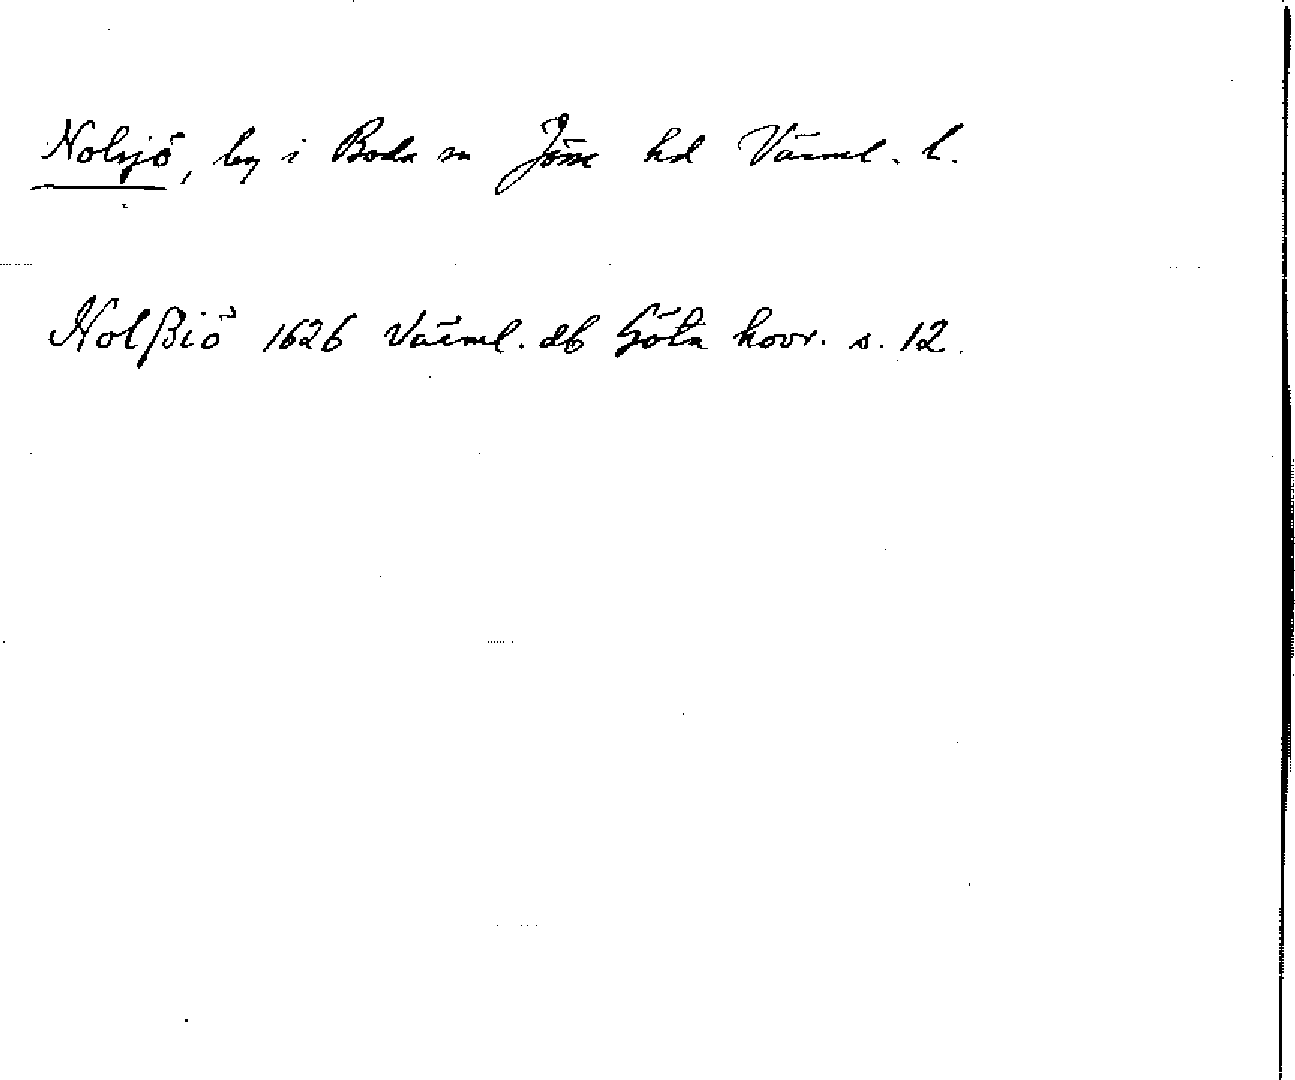 Nolsjö, by i Boda sn Jösse hd Värml. l.
Nolßiö 1626 Värml. db Göta hovr. s. 12.